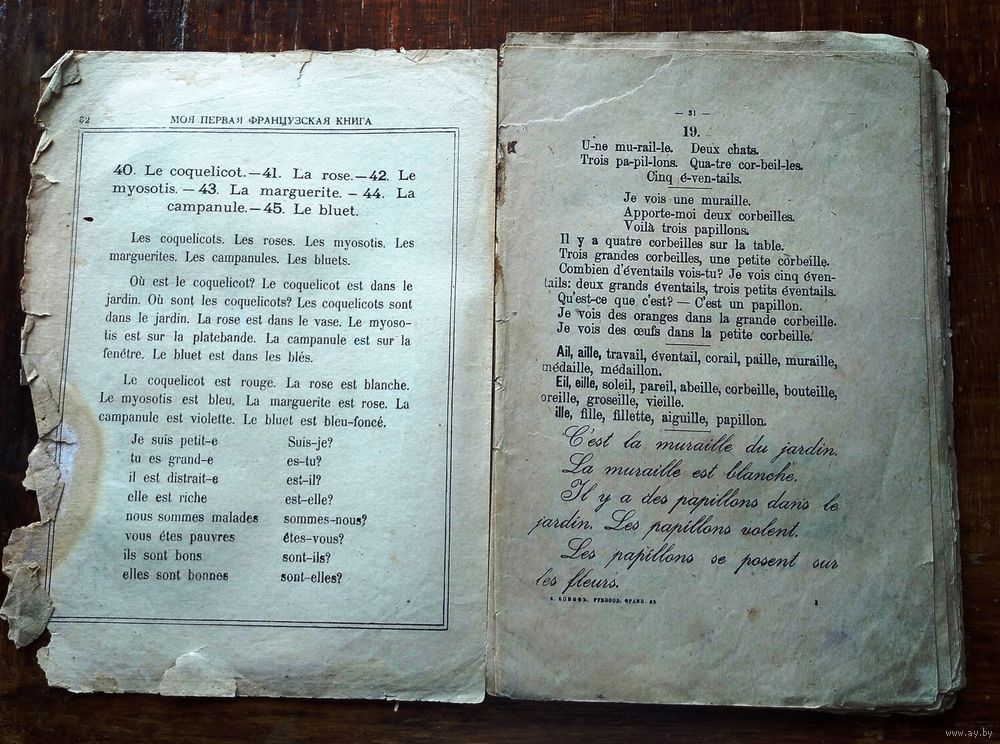 82 МОЯ ПЕРВАЯ ФРАНЦУЗСКАЯ КНИГА
40. Le coquelicot.—41. La rose.—42. Le
myosotis. — 43. La marguerite. – 44. La
campanule.—45. Le bluet.
Les coquelicots. Les roses. Les myosotis. Les
marguerites. Les campanules. Les bluets.
Où est le coquelicot? Le coquelicot est dans le
jardin. Où sont les coquelicots? Les coquelicots sont
dans le jardin. La rose est dans le vase. Le myoso-
tis est sur la platebande. La campanule est sur la
fenétre. Le bluet est dans les blés.
Le coquelicot est rouge. La rose est blanche.
Le myosotis est bleu. La marguerite est rose. La
campanule est violette. Le bluet est bleu-foncé.
Je suis petit-e Suis-je?
tu es grand-e es-tu?
il est distrait-e est-il?
elle est riche est-elle?
nous sommes malades sommes-nous?
vous étes pauvres étes-vous?
ils sont bons sont-ils?
elles sont bonnes sont-elles?
— 31 —
19.
U-ne mu-rail-le. Deux chats.
Trois pa-pil-lons. Qua-tre cor-beil-les.
Cinq é-ven-tails.
Je vois une muraille.
Apporte-moi deux corbeilles.
Voilà trois papillons.
Il y a quatre corbeilles sur la table.
Trois grandes corbeilles, une petite corbeille.
Combien d'éventails vois-tu? Je vois cinq éven-
tails: deux grands éventails, trois petits éventails.
Qu'est-ce que c'est? — C'est un papillon.
Je vois des oranges dans la grande corbeille.
Je vois des œufs dans la petite corbeille.
Ail, aille, travail, éventail, corail, paille, muraille,
médaille, médaillon.
Eil, eille, soleil, pareil, abeille, corbeille, bouteille,
oreille, groseille, vieille.
ille, fille, fillette, aiguille, papillon.
C'est la muraille du jardin.
La muraille est blanche.
Il y a des papillons dans le
jardin. Les papillons volent.
Les papillons se posent sur
les fleurs.
РУКОВОД. ФРАНЦ. ЯЗ.
www.ay.by